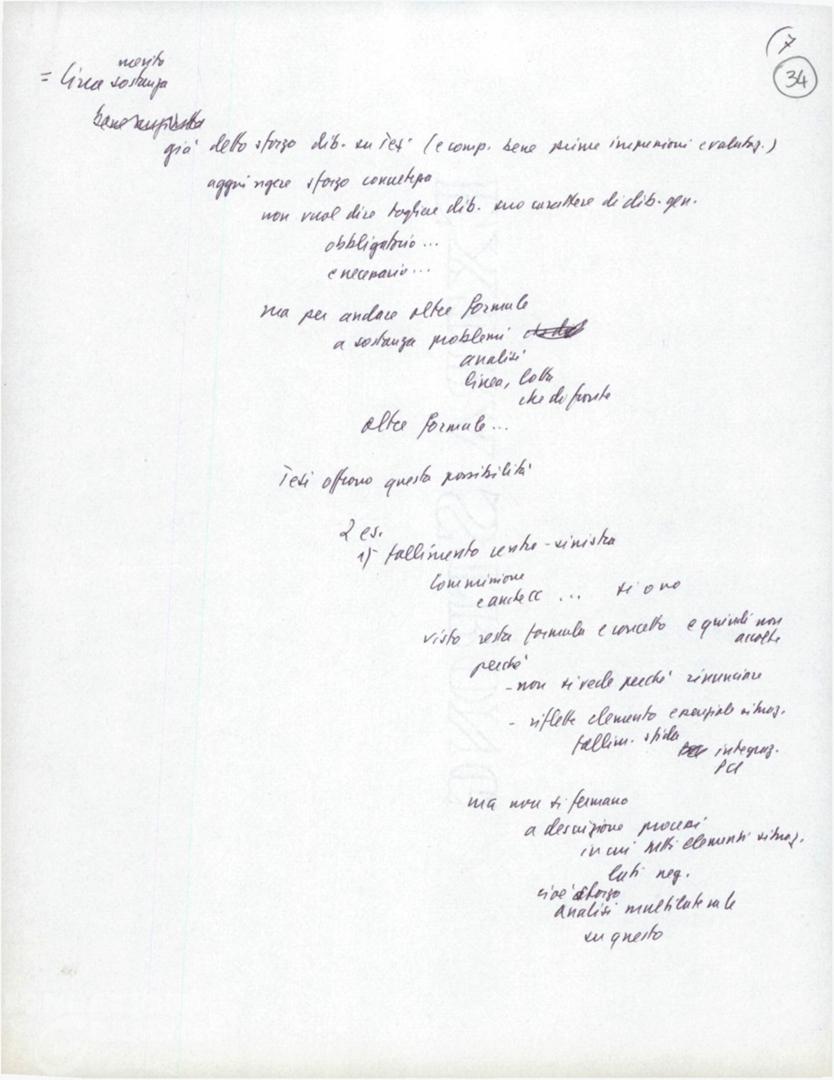 7
34
merito
= linea sostanza
già dello sforzo dib. su Tesi (e comp. bene prime impressioni e valutaz.)
aggiungere sforzo concreto
non vuol dire togliere dib. suo carattere di dib. gen.
obbligatorio...
e necessario...
ma per andare oltre formule
a sostanza problemi
analisi
linea, lotta
che di fronte
oltre formule...
Tesi offrono questa possibilità
2 es.
1) fallimento centro-sinistra
Commissione
e anche CC ... sì o no
visto resta formula e concetto e quindi non
accolte
perché
- non si vede perché rinunciare
- riflette elemento essenziale situaz.
fallim. sfida
integraz.
PCI
ma non si fermano
a descrizione processi
in cui tutti elementi situaz.
lati neg.
cioè sforzo
analisi multilaterale
su questo